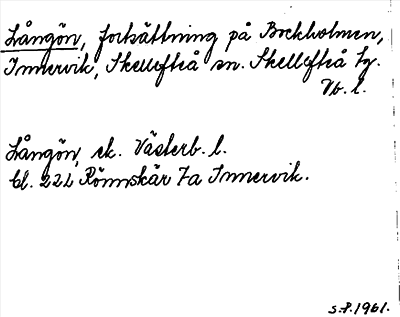 Långön, fortsättning på Bockholmen,
Innervik, Skellefteå sn. Skellefteå tg.
Vb. l.
Långön, ek. Västerb. l.
Bl. 22L Rönnskär 7a Innervik.
S.P. 1961.